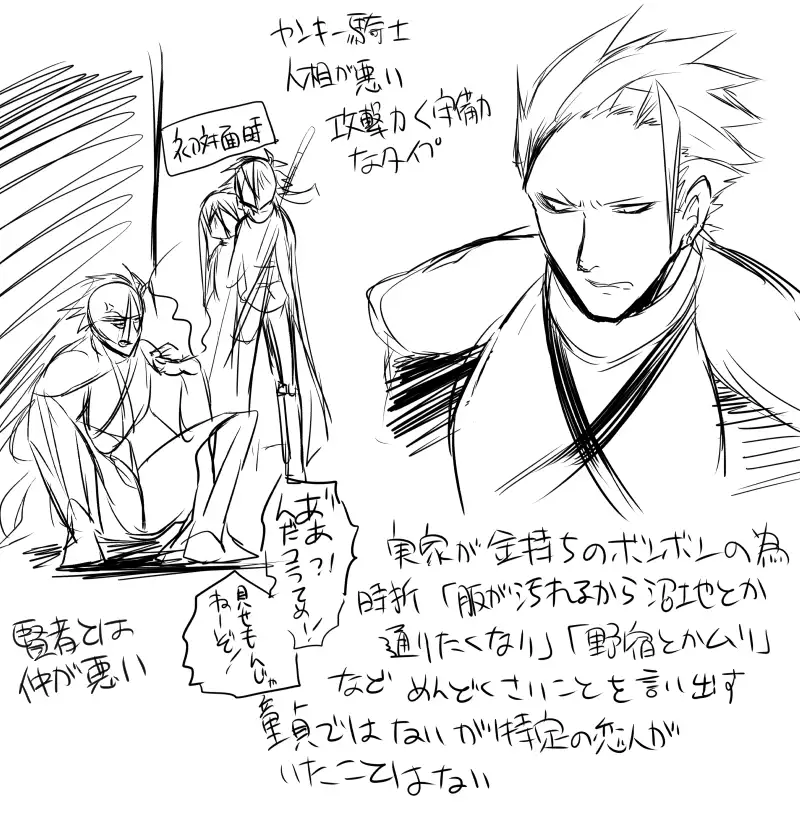 ヤンキー騎士
人相が悪い
攻撃力く守備力
なタイプ
初対面時
あ゛あっ?!
んだコラてめー!
見せもんじゃ
ねーぞ!
賢者とは
仲が悪い
実家が金持ちのボンボンの為
時折「服が汚れるから沼地とか
通りたくない」「野宿とかムリ」
など めんどくさいことを言い出す
童貞ではないが特定の恋人が
いたことはない